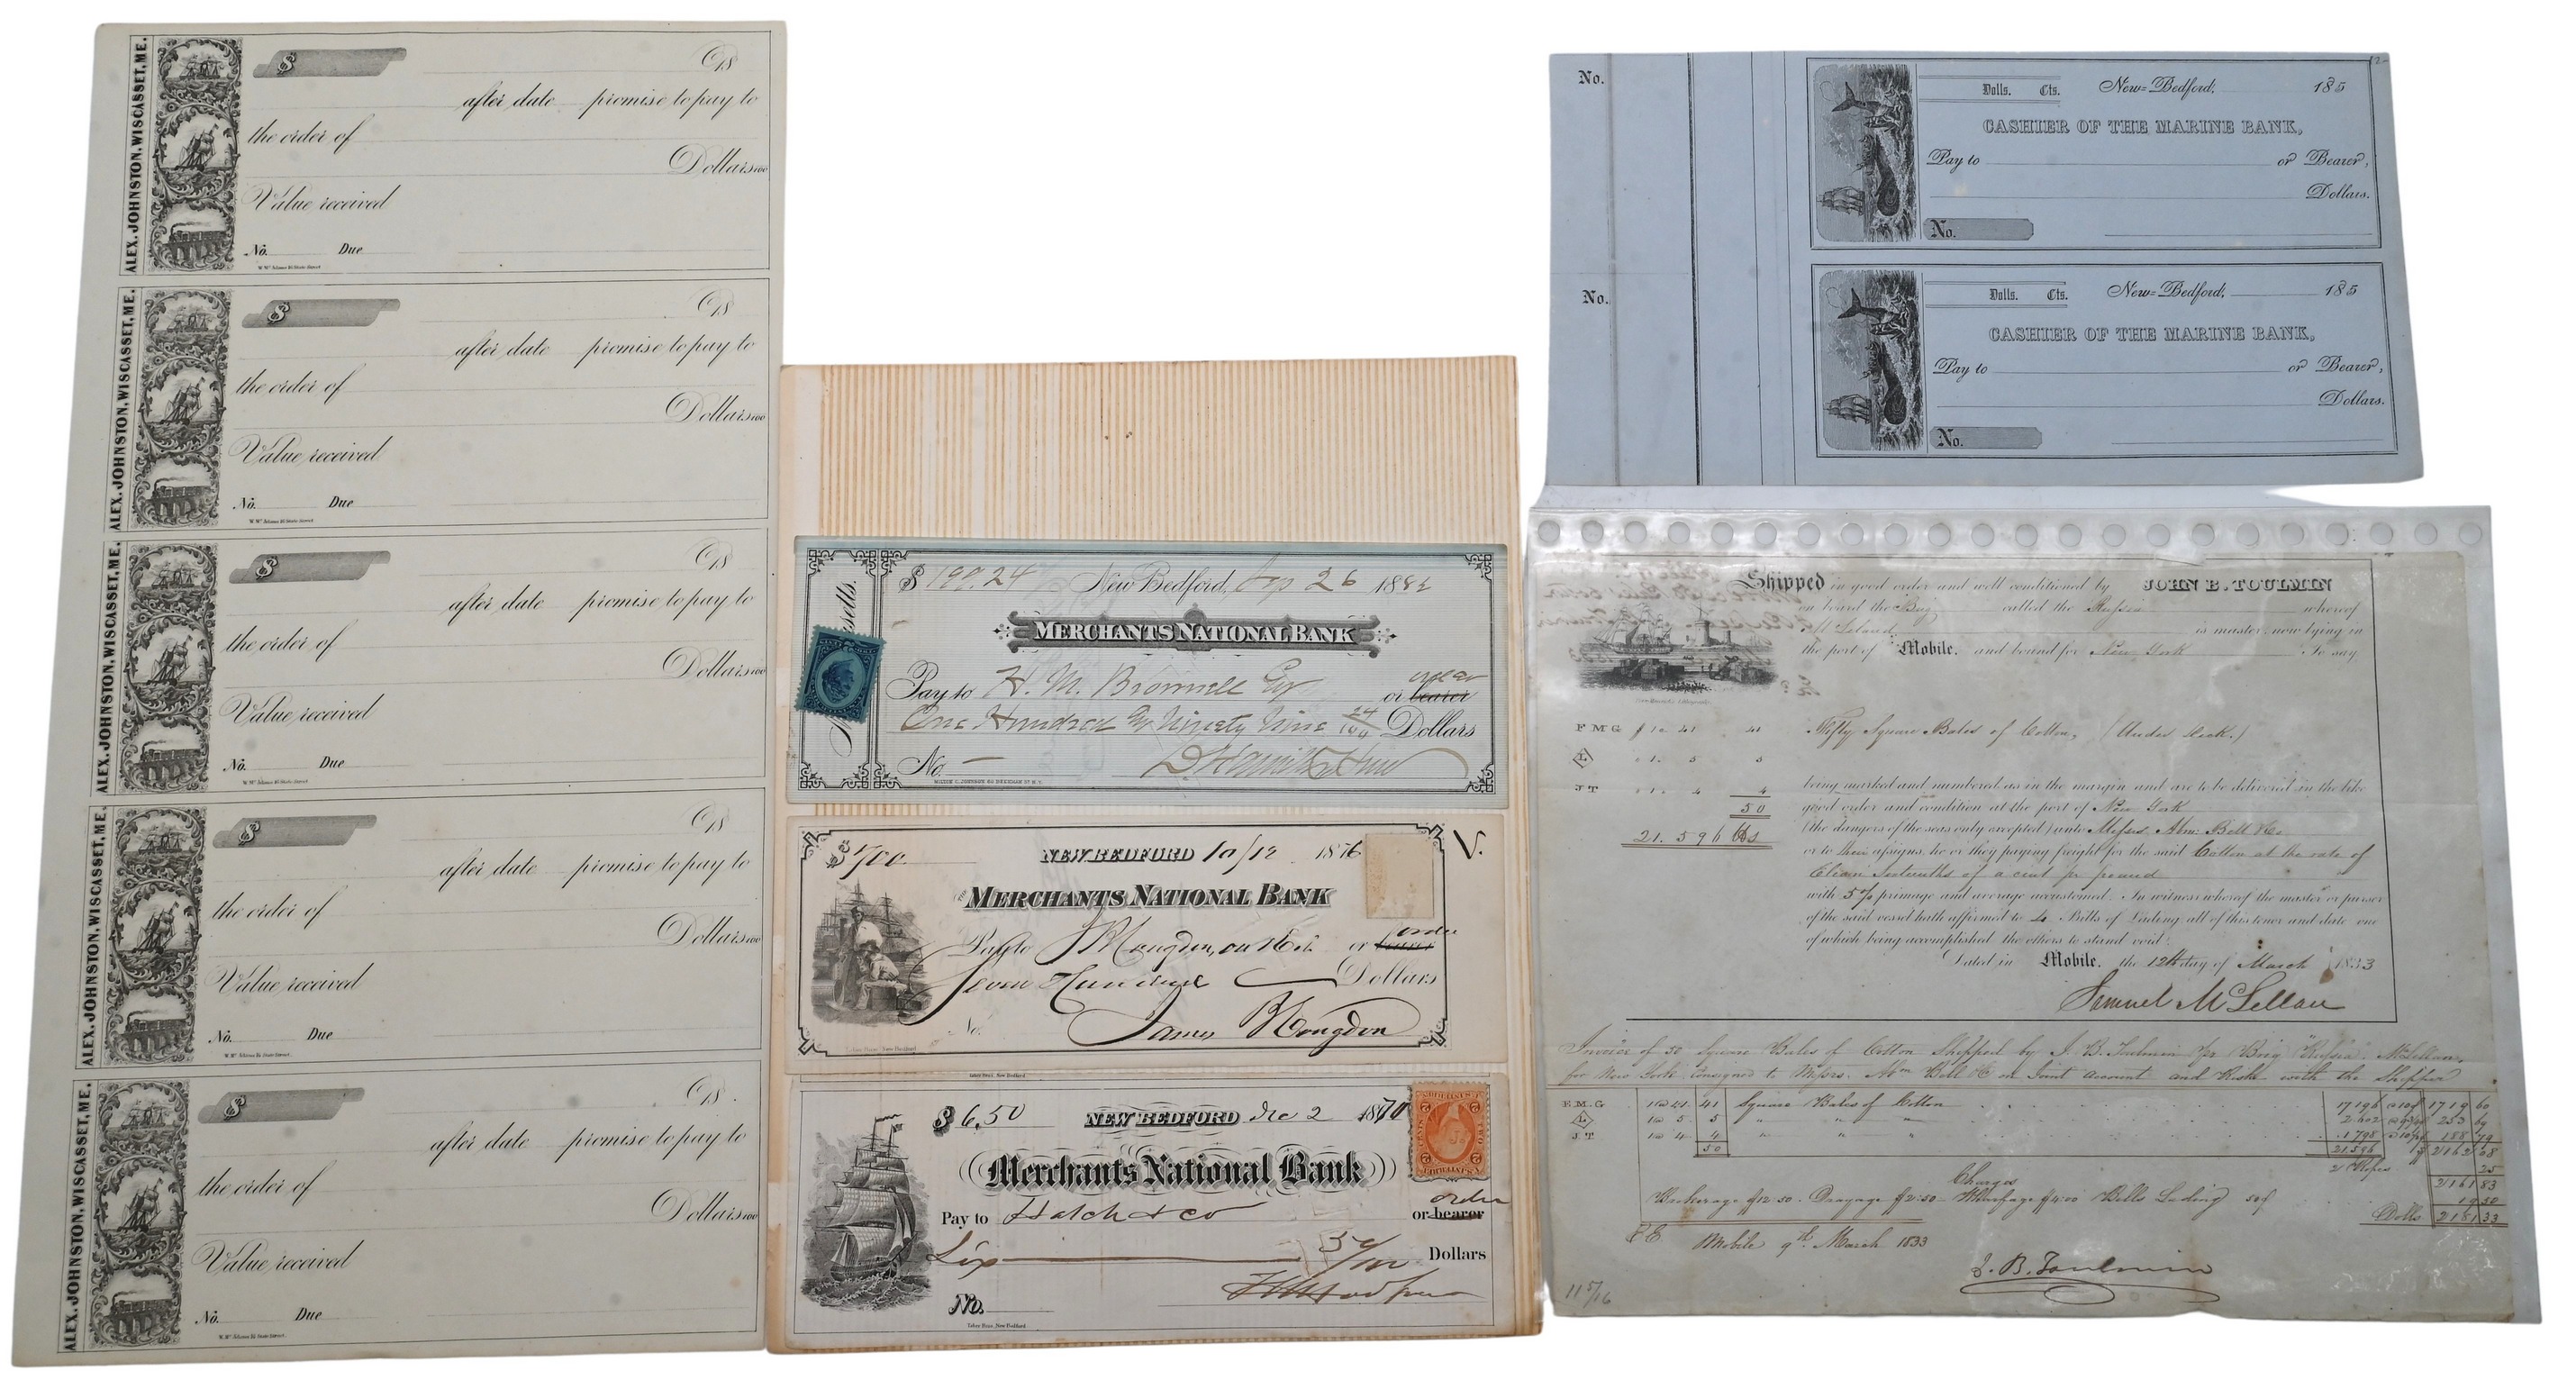 ALEX. JOHNSTON, WISCASSET, ME.
$ 18
after date promise to pay to
the order of
Dollars
Value received
No. Due
W. Wms. Adams 16 State Street
ALEX. JOHNSTON, WISCASSET, ME.
$ 18
after date promise to pay to
the order of
Dollars
Value received
No. Due
ALEX. JOHNSTON, WISCASSET, ME.
$ 18
after date promise to pay to
the order of
Dollars
Value received
No. Due
ALEX. JOHNSTON, WISCASSET, ME.
$ 18
after date promise to pay to
the order of
Dollars
Value received
No. Due
ALEX. JOHNSTON, WISCASSET, ME.
$ 18
after date promise to pay to
the order of
Dollars
Value received
No. Due
$ 199.24 New Bedford, Sep 26 188
MERCHANTS NATIONAL BANK
Pay to H. M. Brownell Esq or bearer order
One Hundred & Ninety Nine 24/100 Dollars
No. —
MILTON C. JOHNSON
$ 700 NEW BEDFORD 10/12 1876
V.
THE MERCHANTS NATIONAL BANK
Pay to or bearer order
Seven Hundred Dollars
No.
James Congdon
Taber Bros. New Bedford
$ 6.50 NEW BEDFORD Dec 2 1870
Merchants National Bank
Pay to Hatch & Co or bearer order
Six 50/100 Dollars
No.
Taber Bros, New Bedford
No.
Dolls. Cts. New-Bedford, 185
CASHIER OF THE MARINE BANK,
Pay to or Bearer,
Dollars.
No.
No.
Dolls. Cts. New-Bedford, 185
CASHIER OF THE MARINE BANK,
Pay to or Bearer,
Dollars.
No.
Shipped in good order and well conditioned by JOHN B. TOULMIN
on board the Brig called the Russia whereof
is master, now lying in
the port of Mobile, and bound for New York To say
F M G 1 a 41 41 Fifty Square Bales of Cotton, (Under deck.)
L 1 5 5
J T 1 4 4
50
21.596 lbs
being marked and numbered as in the margin and are to be delivered in the like
good order and condition at the port of New York
(the dangers of the seas only excepted) unto Messrs. Abm. Bell & Co
or to their assigns, he or they paying freight for the said Cotton at the rate of
Eleven Sixteenths of a cent pr pound
with 5% primage and average accustomed. In witness whereof the master or purser
of the said vessel hath affirmed to 4 Bills of Lading all of this tenor and date one
of which being accomplished the others to stand void.
Dated in Mobile, the 12th day of March 1833
Samuel McLellan
Invoice of 50 Square Bales of Cotton Shipped by J. B. Toulmin pr Brig "Russia" McLellan,
for New York consigned to Messrs. Abm Bell & Co on Joint Account and Risk with the Shipper
F.M.G 1 a 41 41 Square Bales of Cotton
L 1 a 5 5 " " "
J T 1 a 4 4 " " "
50
Charges
Brokerage $12.50. Drayage $2.50 Wharfage $4.00 Bills Lading 50¢ 19 50
Dolls 2181 33
E E Mobile 9th March 1833
J. B. Toulmin
11 5/16